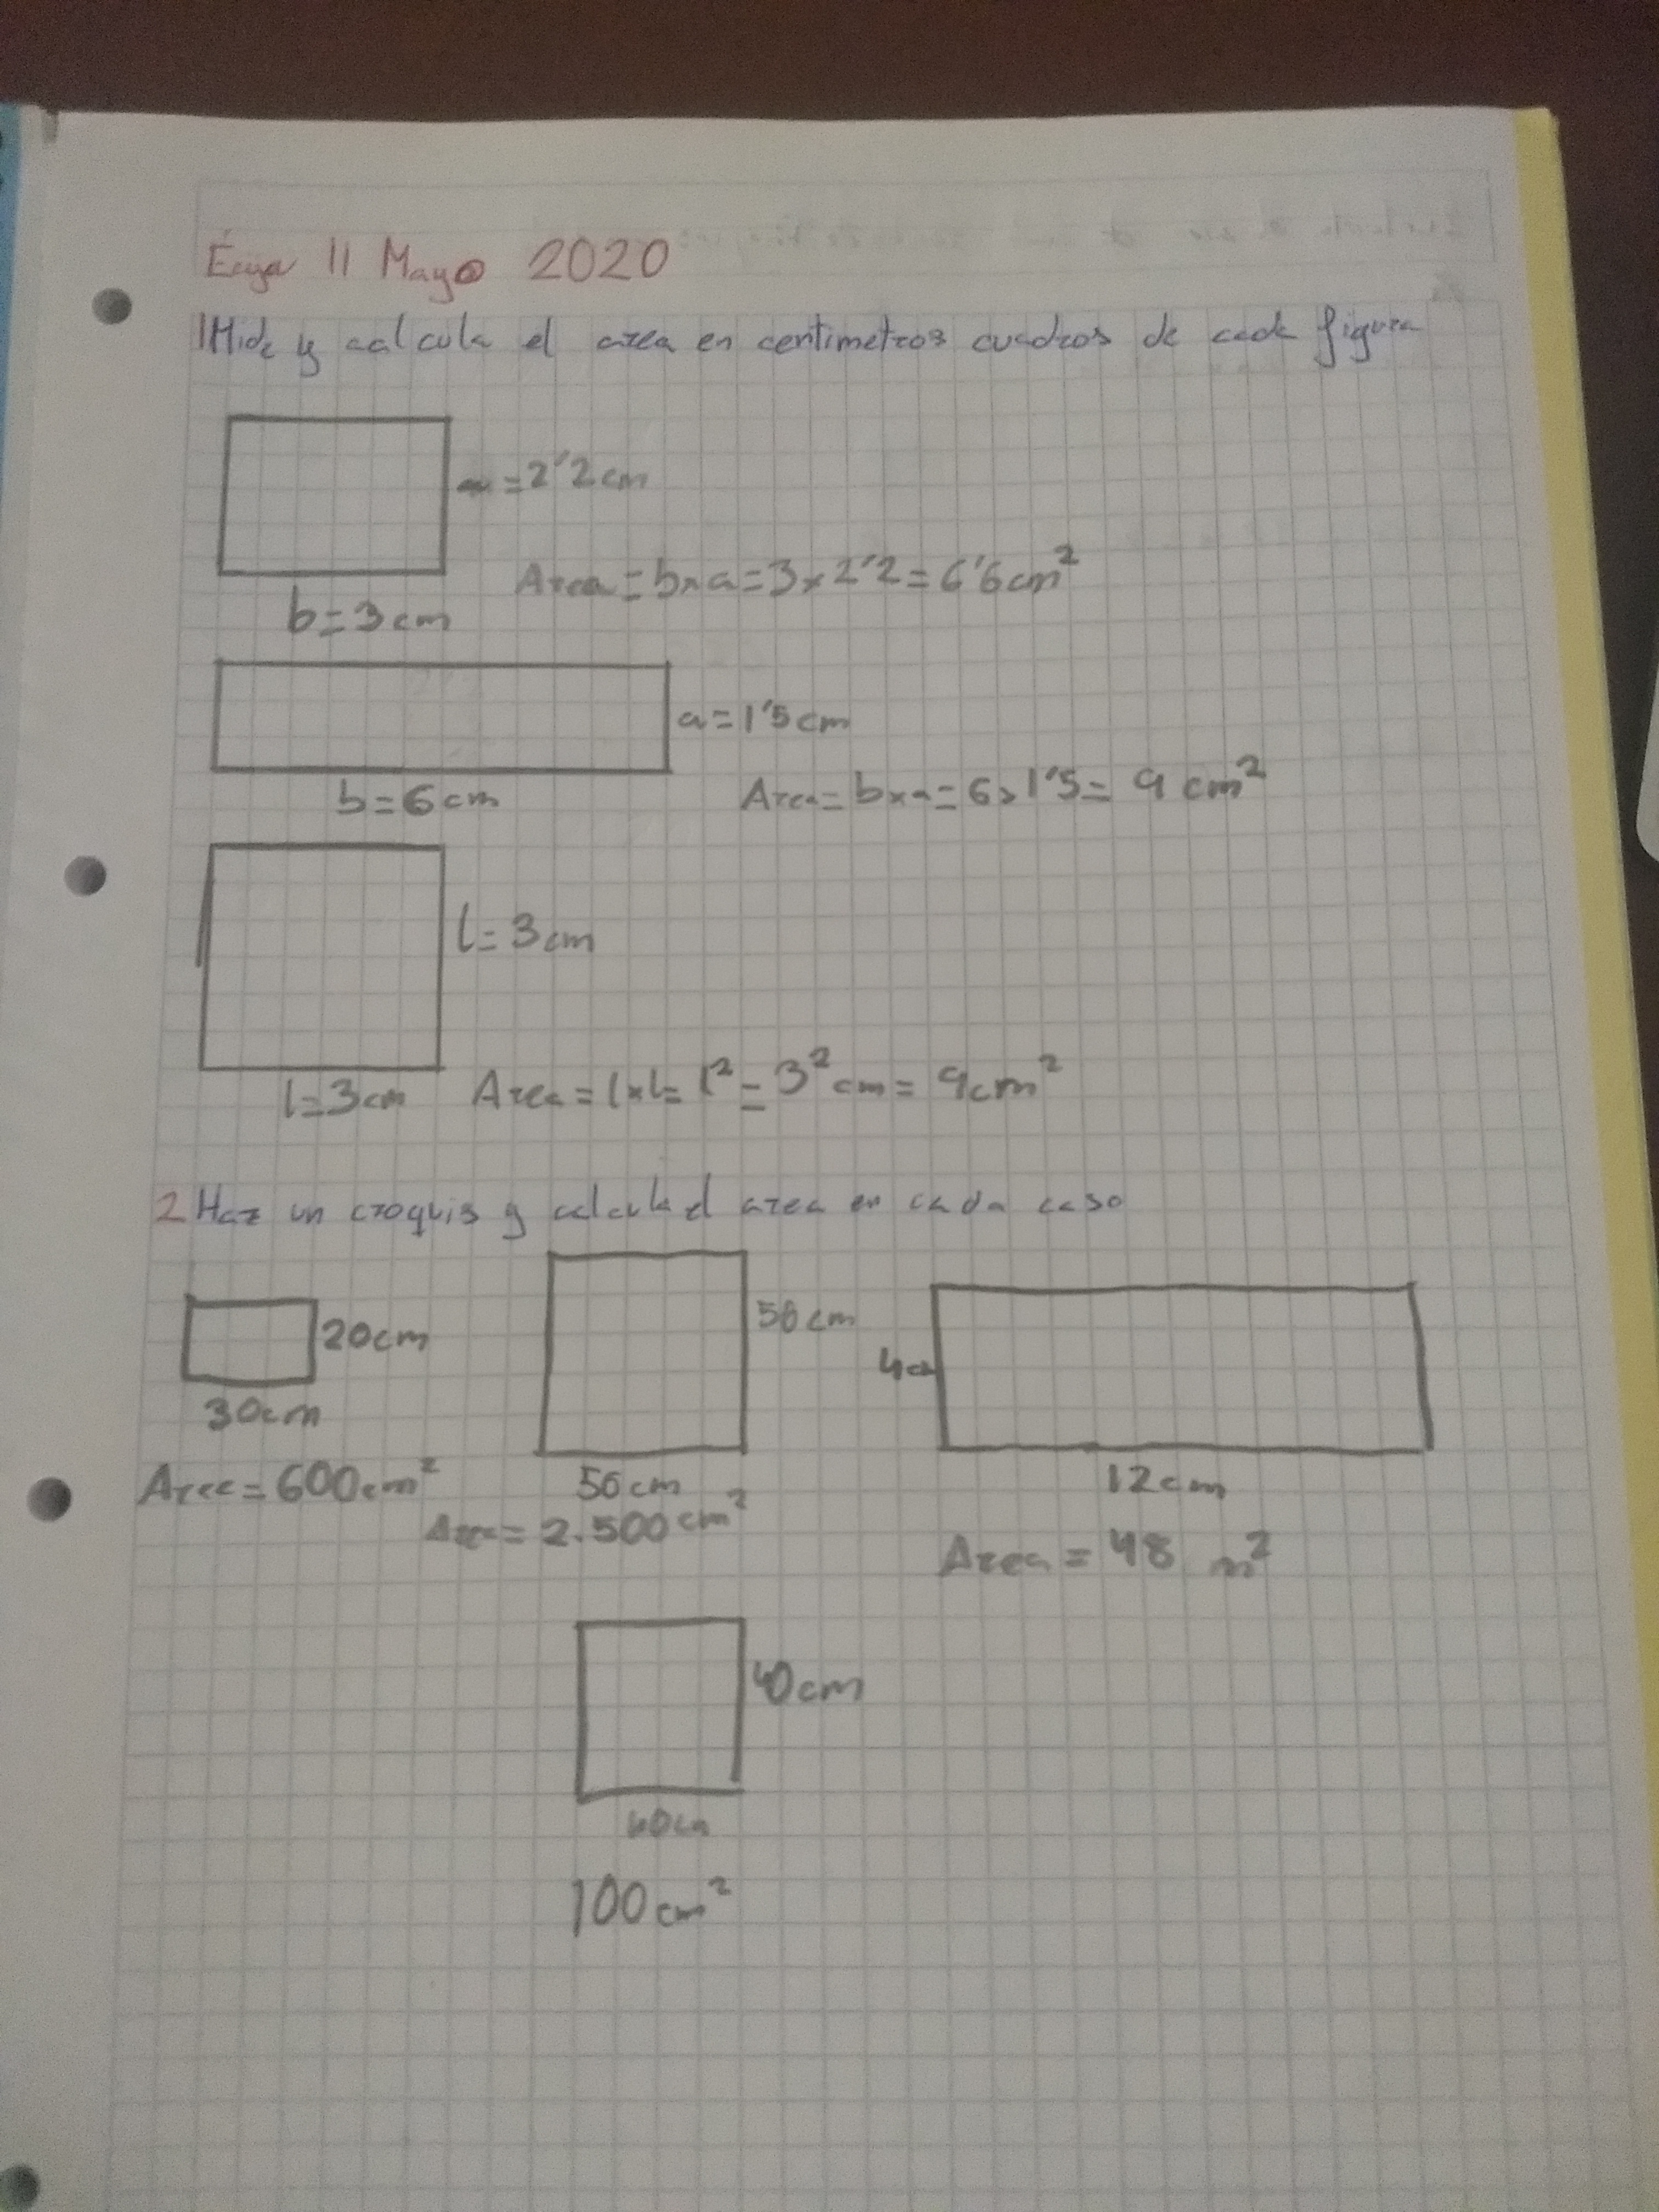 Écija 11 Mayo 2020
1 Mide y calcula el area en centimetros cuadros de cada figura
a=2'2cm
Area=bxa=3x2'2=6'6cm²
b=3cm
a=1'5cm
b=6cm
Area=bxa=6x1'5=9 cm²
l=3cm
l=3cm
Area=lxl=l²=3²cm=9cm²
2 Haz un croquis y calcula el area en cada caso
20cm
30cm
Area=600cm²
50cm
50cm
Area=2.500cm²
4cm
12cm
Area=48 m²
40cm
40cm
100cm²